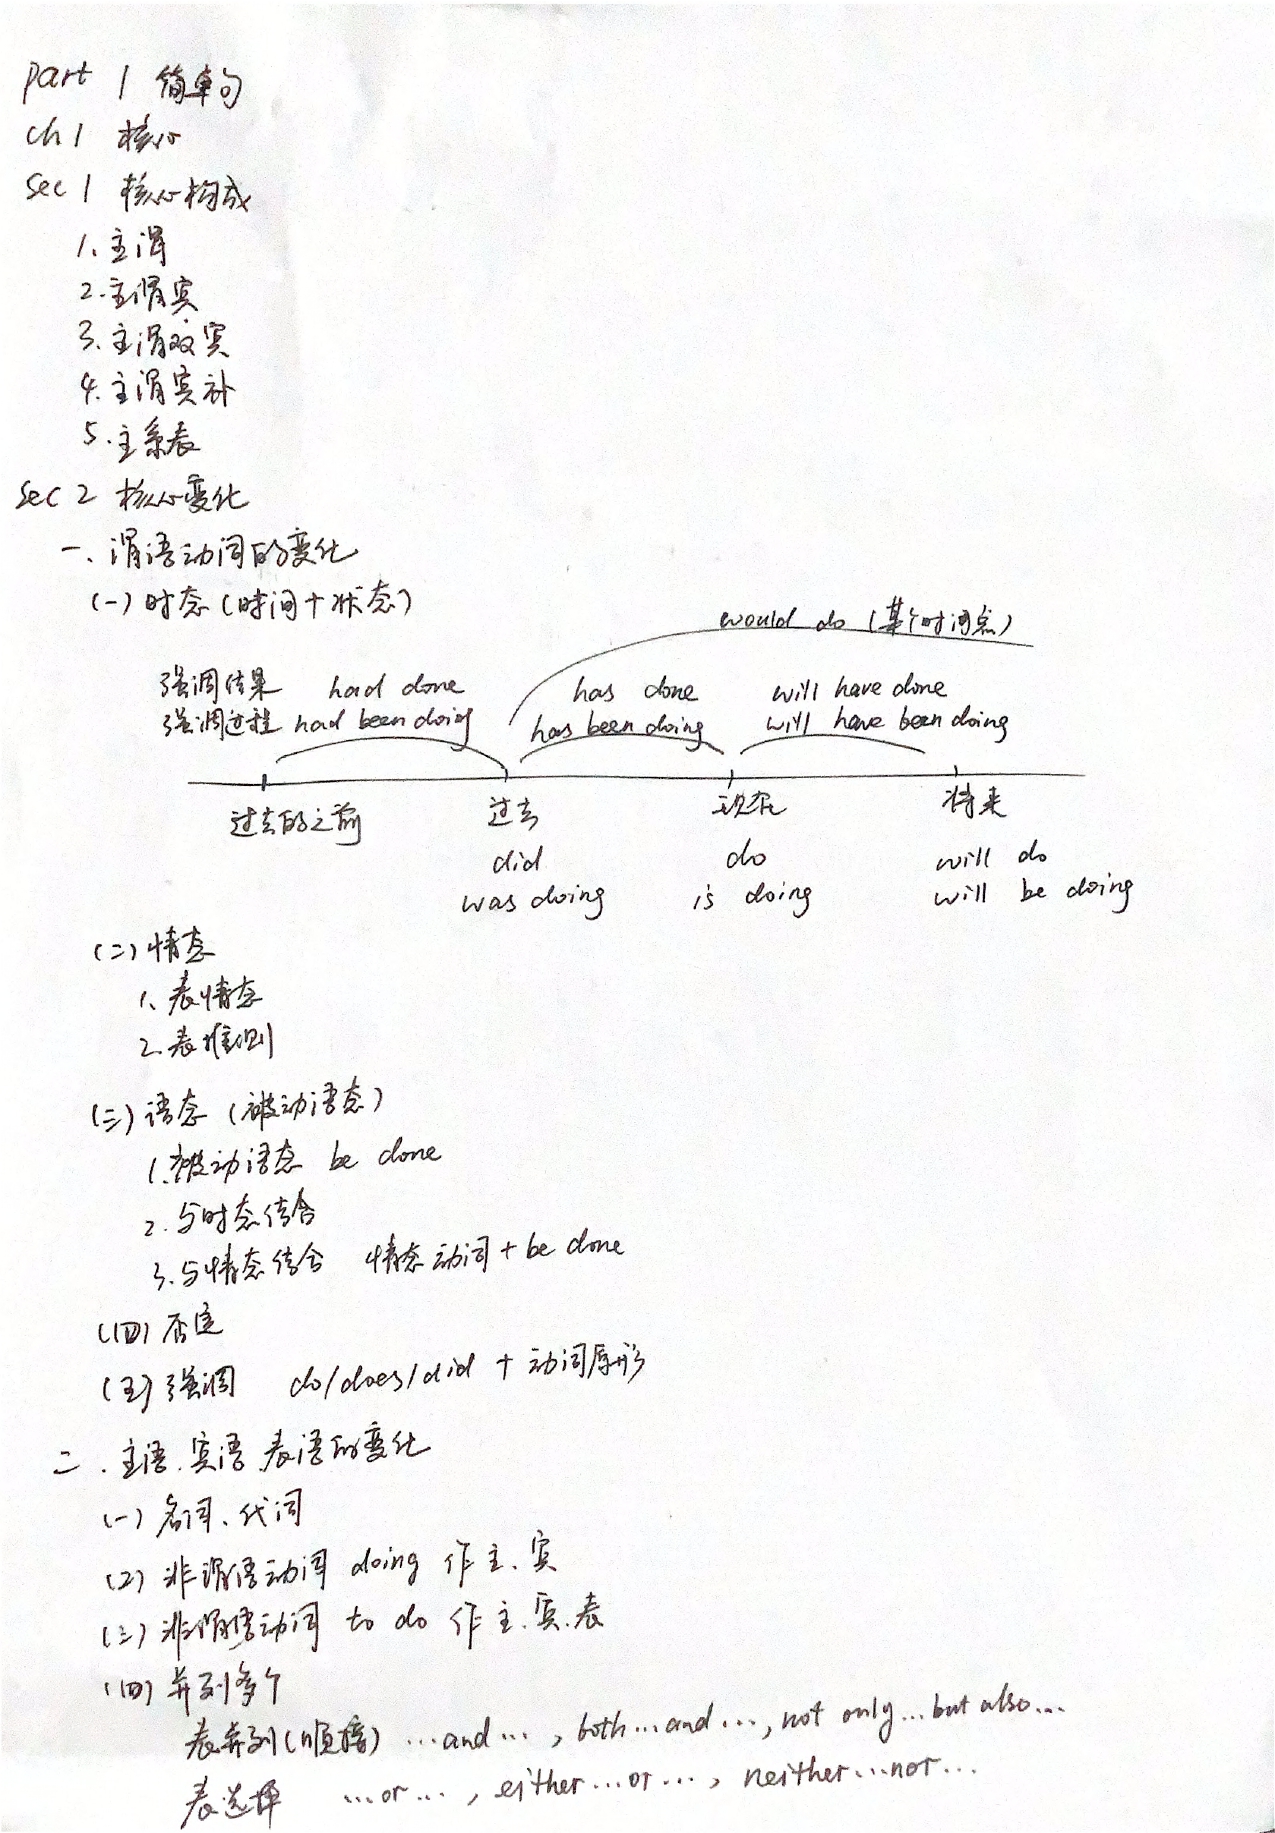 part 1 简单句
ch 1 核心
sec 1 核心构成
1、主谓
2.主谓宾
3.主谓双宾
4.主谓宾补
5.主系表
sec 2 核心变化
一、谓语动词的变化
(一)时态(时间+状态)
would do (某个时间点)
强调结果 had done has done will have done
强调过程 had been doing has been doing will have been doing
过去的之前 过去 现在 将来
did do will do
was doing is doing will be doing
(二)情态
1、表情态
2.表推测
(三)语态(被动语态)
1.被动语态 be done
2.与时态结合
3.与情态结合 情态动词+be done
(四)否定
(五)强调 do/does/did + 动词原形
二.主语.宾语.表语的变化
(一)名词、代词
(2)非谓语动词 doing 作主、宾
(三)非谓语动词 to do 作主.宾.表
(四)并列多个
表并列(顺接) …and…, both…and…, not only…but also…
表选择 …or…, either…or…, neither…nor…